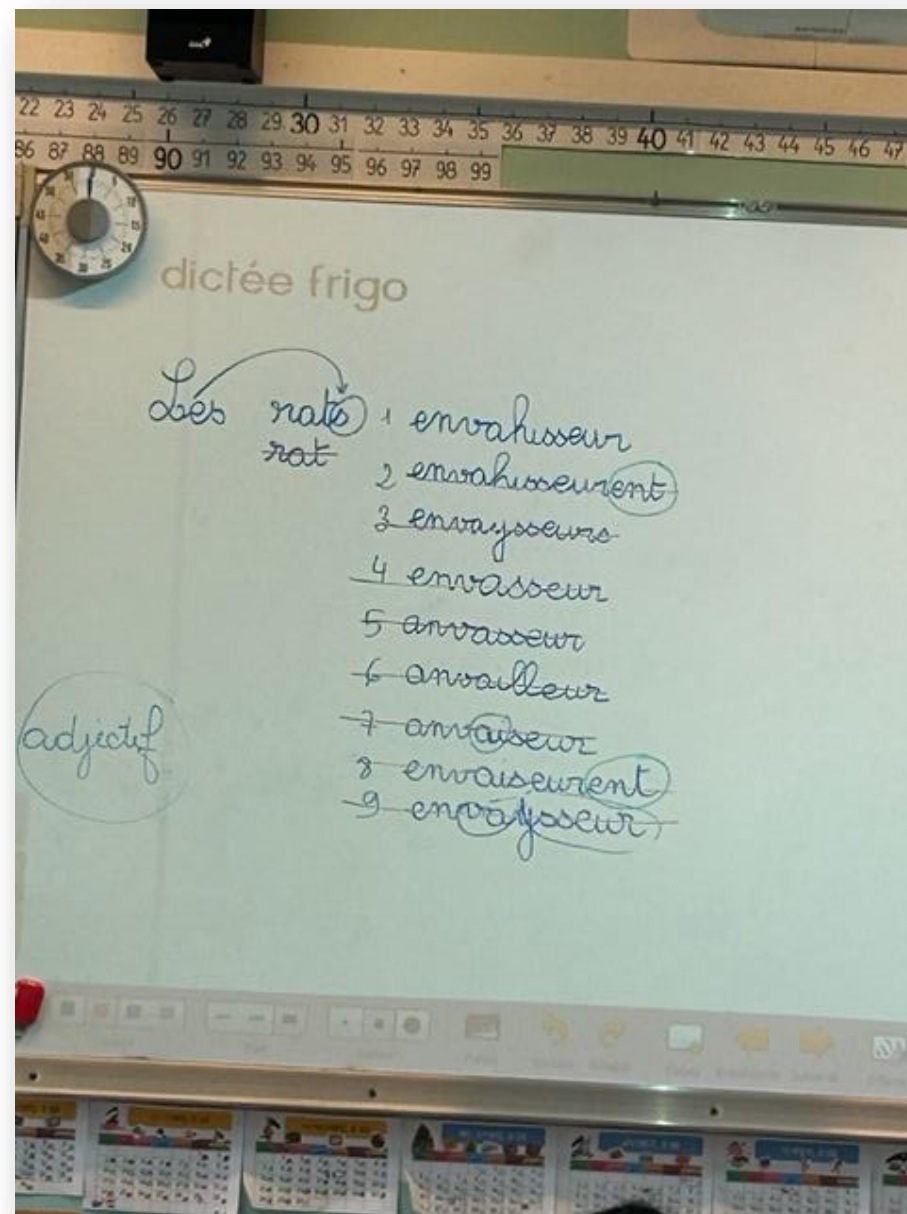 22 23 24 25 26 27 28 29 30 31 32 33 34 35 36 37 38 39 40 41 42 43 44 45 46 47
86 87 88 89 90 91 92 93 94 95 96 97 98 99
dictée frigo
Les rats 1 envahisseur
rat
2 envahisseurent
3 envaysseurs
4 envasseur
5 anvasseur
6 anvailleur
7 anvaiseur
adjectif
8 envaiseurent
9 envaysseur